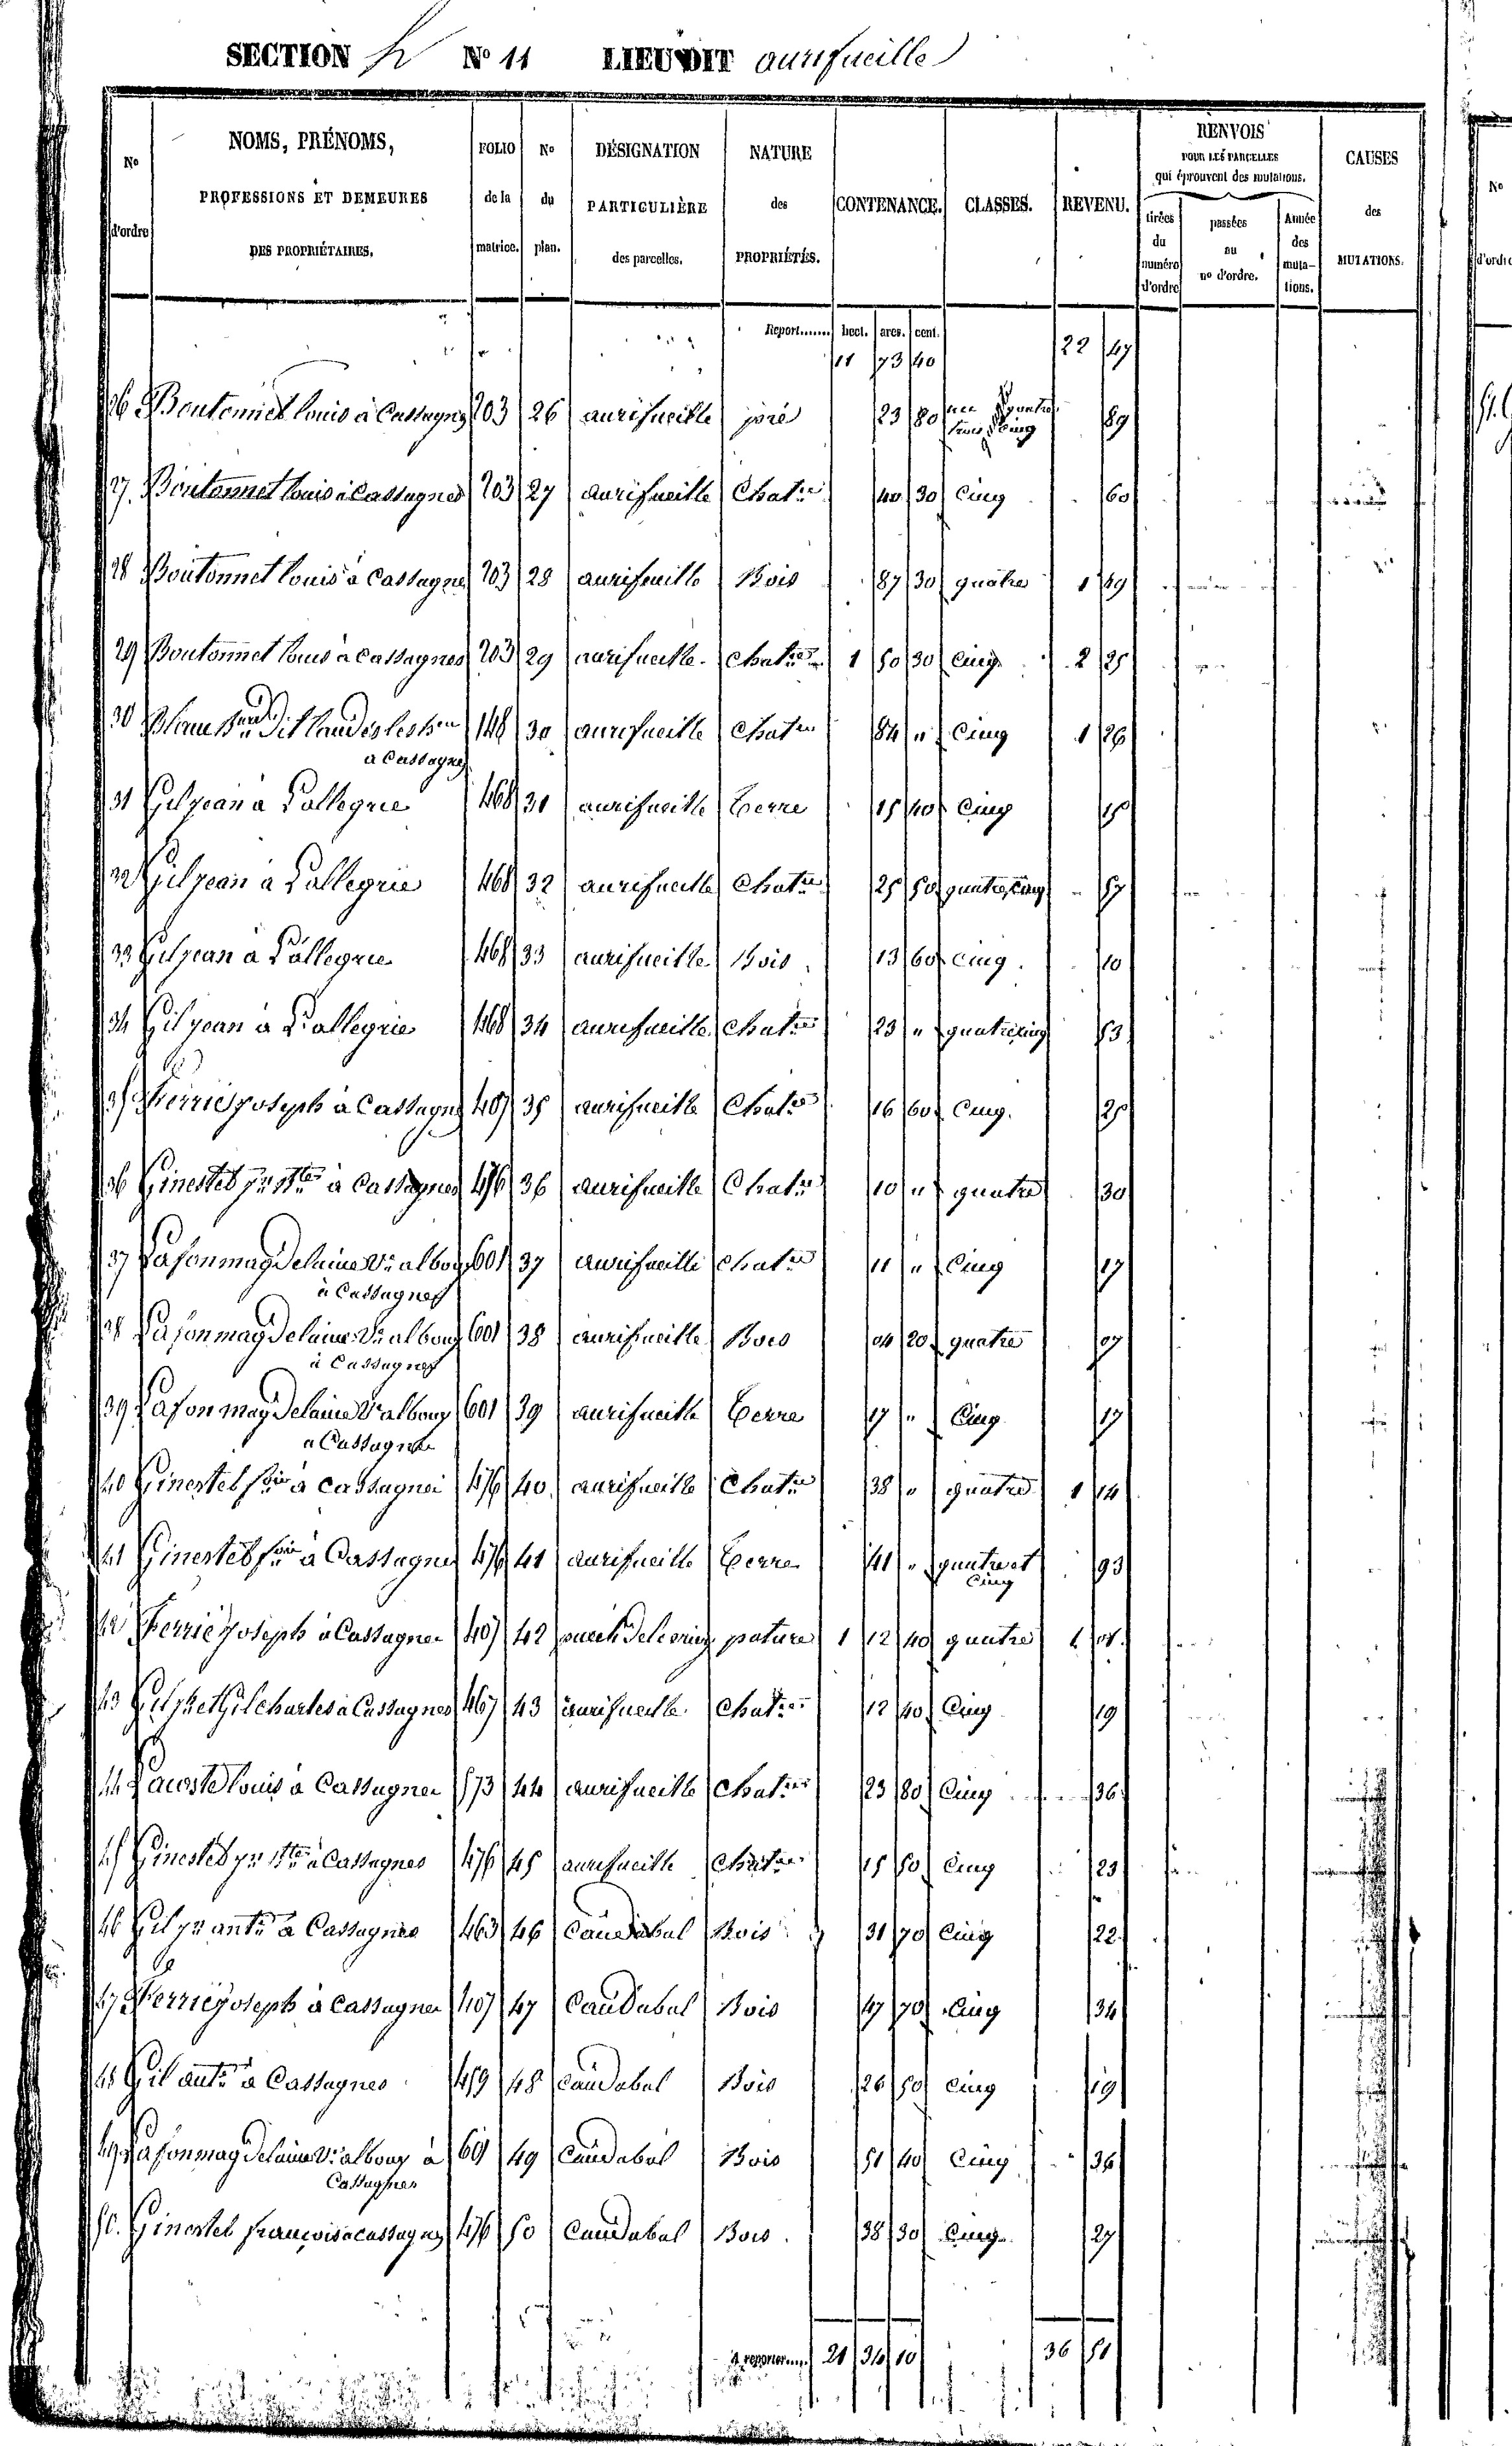 SECTION h No 11 LIEUDIT aurifueille
No d'ordre NOMS, PRÉNOMS, PROFESSIONS ET DEMEURES DES PROPRIÉTAIRES. FOLIO de la matrice. No du plan. DÉSIGNATION PARTICULIÈRE des parcelles. NATURE des PROPRIÉTÉS. CONTENANCE. CLASSES. REVENU. RENVOIS POUR LES PARCELLES qui éprouvent des mutations. tirées du numéro d'ordre passées au no d'ordre. Année des mutations. CAUSES des MUTATIONS.
Report....... hect. ares. cent.
11 73 40 22 47
26 Boutonnet louis à Cassagnes 203 26 aurifueille pré 23 80 89
27 Boutonnet louis à Cassagnes 203 27 aurifueille Chatre 40 30 Cinq 60
28 Boutonnet louis à Cassagnes 203 28 aurifueille Bois 87 30 quatre 1 49
29 Boutonnet louis à Cassagnes 203 29 aurifueille Chatre 1 50 30 Cinq 2 25
30 dit 148 30 aurifueille Chatre 84 " Cinq 1 26
à Cassagnes
31 Gil jean à Pallegrie 468 31 aurifueille Terre 15 40 Cinq 15
32 Gil jean à Pallegrie 468 32 aurifueille Chatre 25 50 quatre, cinq 57
33 Gil jean à Pallegrie 468 33 aurifueille Bois 13 60 cinq 10
34 Gil jean à Pallegrie 468 34 aurifueille Chatre 23 " quatre, cinq 53
35 Ferrié joseph à Cassagnes 407 35 aurifueille Chatre 16 60 Cinq. 25
36 Ginestet jn Bte à Cassagnes 476 36 aurifueille Chatre 10 " quatre 30
37 Lafon magdelaine Ve albouy 601 37 aurifueille Chatre 11 " Cinq 17
à Cassagnes
38 Lafon magdelaine Ve albouy 601 38 aurifueille Bois 04 20 quatre 07
à Cassagnes
39 Lafon magdelaine Ve albouy 601 39 aurifueille Terre 17 " Cinq 17
à Cassagnes
40 Ginestet fois à Cassagnes 476 40 aurifueille Chatre 38 " quatre 1 14
41 Ginestet fois à Cassagnes 476 41 aurifueille Terre 41 " quatre et 93
Cinq
42 Ferrié joseph à Cassagnes 407 42 pature 1 12 40 quatre 1
43 Gil charles à Cassagnes 467 43 aurifueille Chatre 12 40 Cinq 19
44 Lacoste louis à Cassagnes 573 44 aurifueille Chatre 23 80 Cinq 36
45 Ginestet jn Bte à Cassagnes 476 45 aurifueille Chatre 15 50 Cinq 23
46 Gil jn ante à Cassagnes 463 46 Caudabal Bois 31 70 Cinq 22
47 Ferrié joseph à Cassagnes 407 47 Caudabal Bois 47 70 Cinq 34
48 Gil ante à Cassagnes 459 48 Caudabal Bois 26 50 Cinq 19
49 Lafon magdelaine Ve albouy à 601 49 Caudabal Bois 51 40 Cinq 36
Cassagnes
50. Ginestet françois à Cassagnes 476 50 Caudabal Bois 38 30 Cinq 27
A reporter.... 21 34 10 36 51